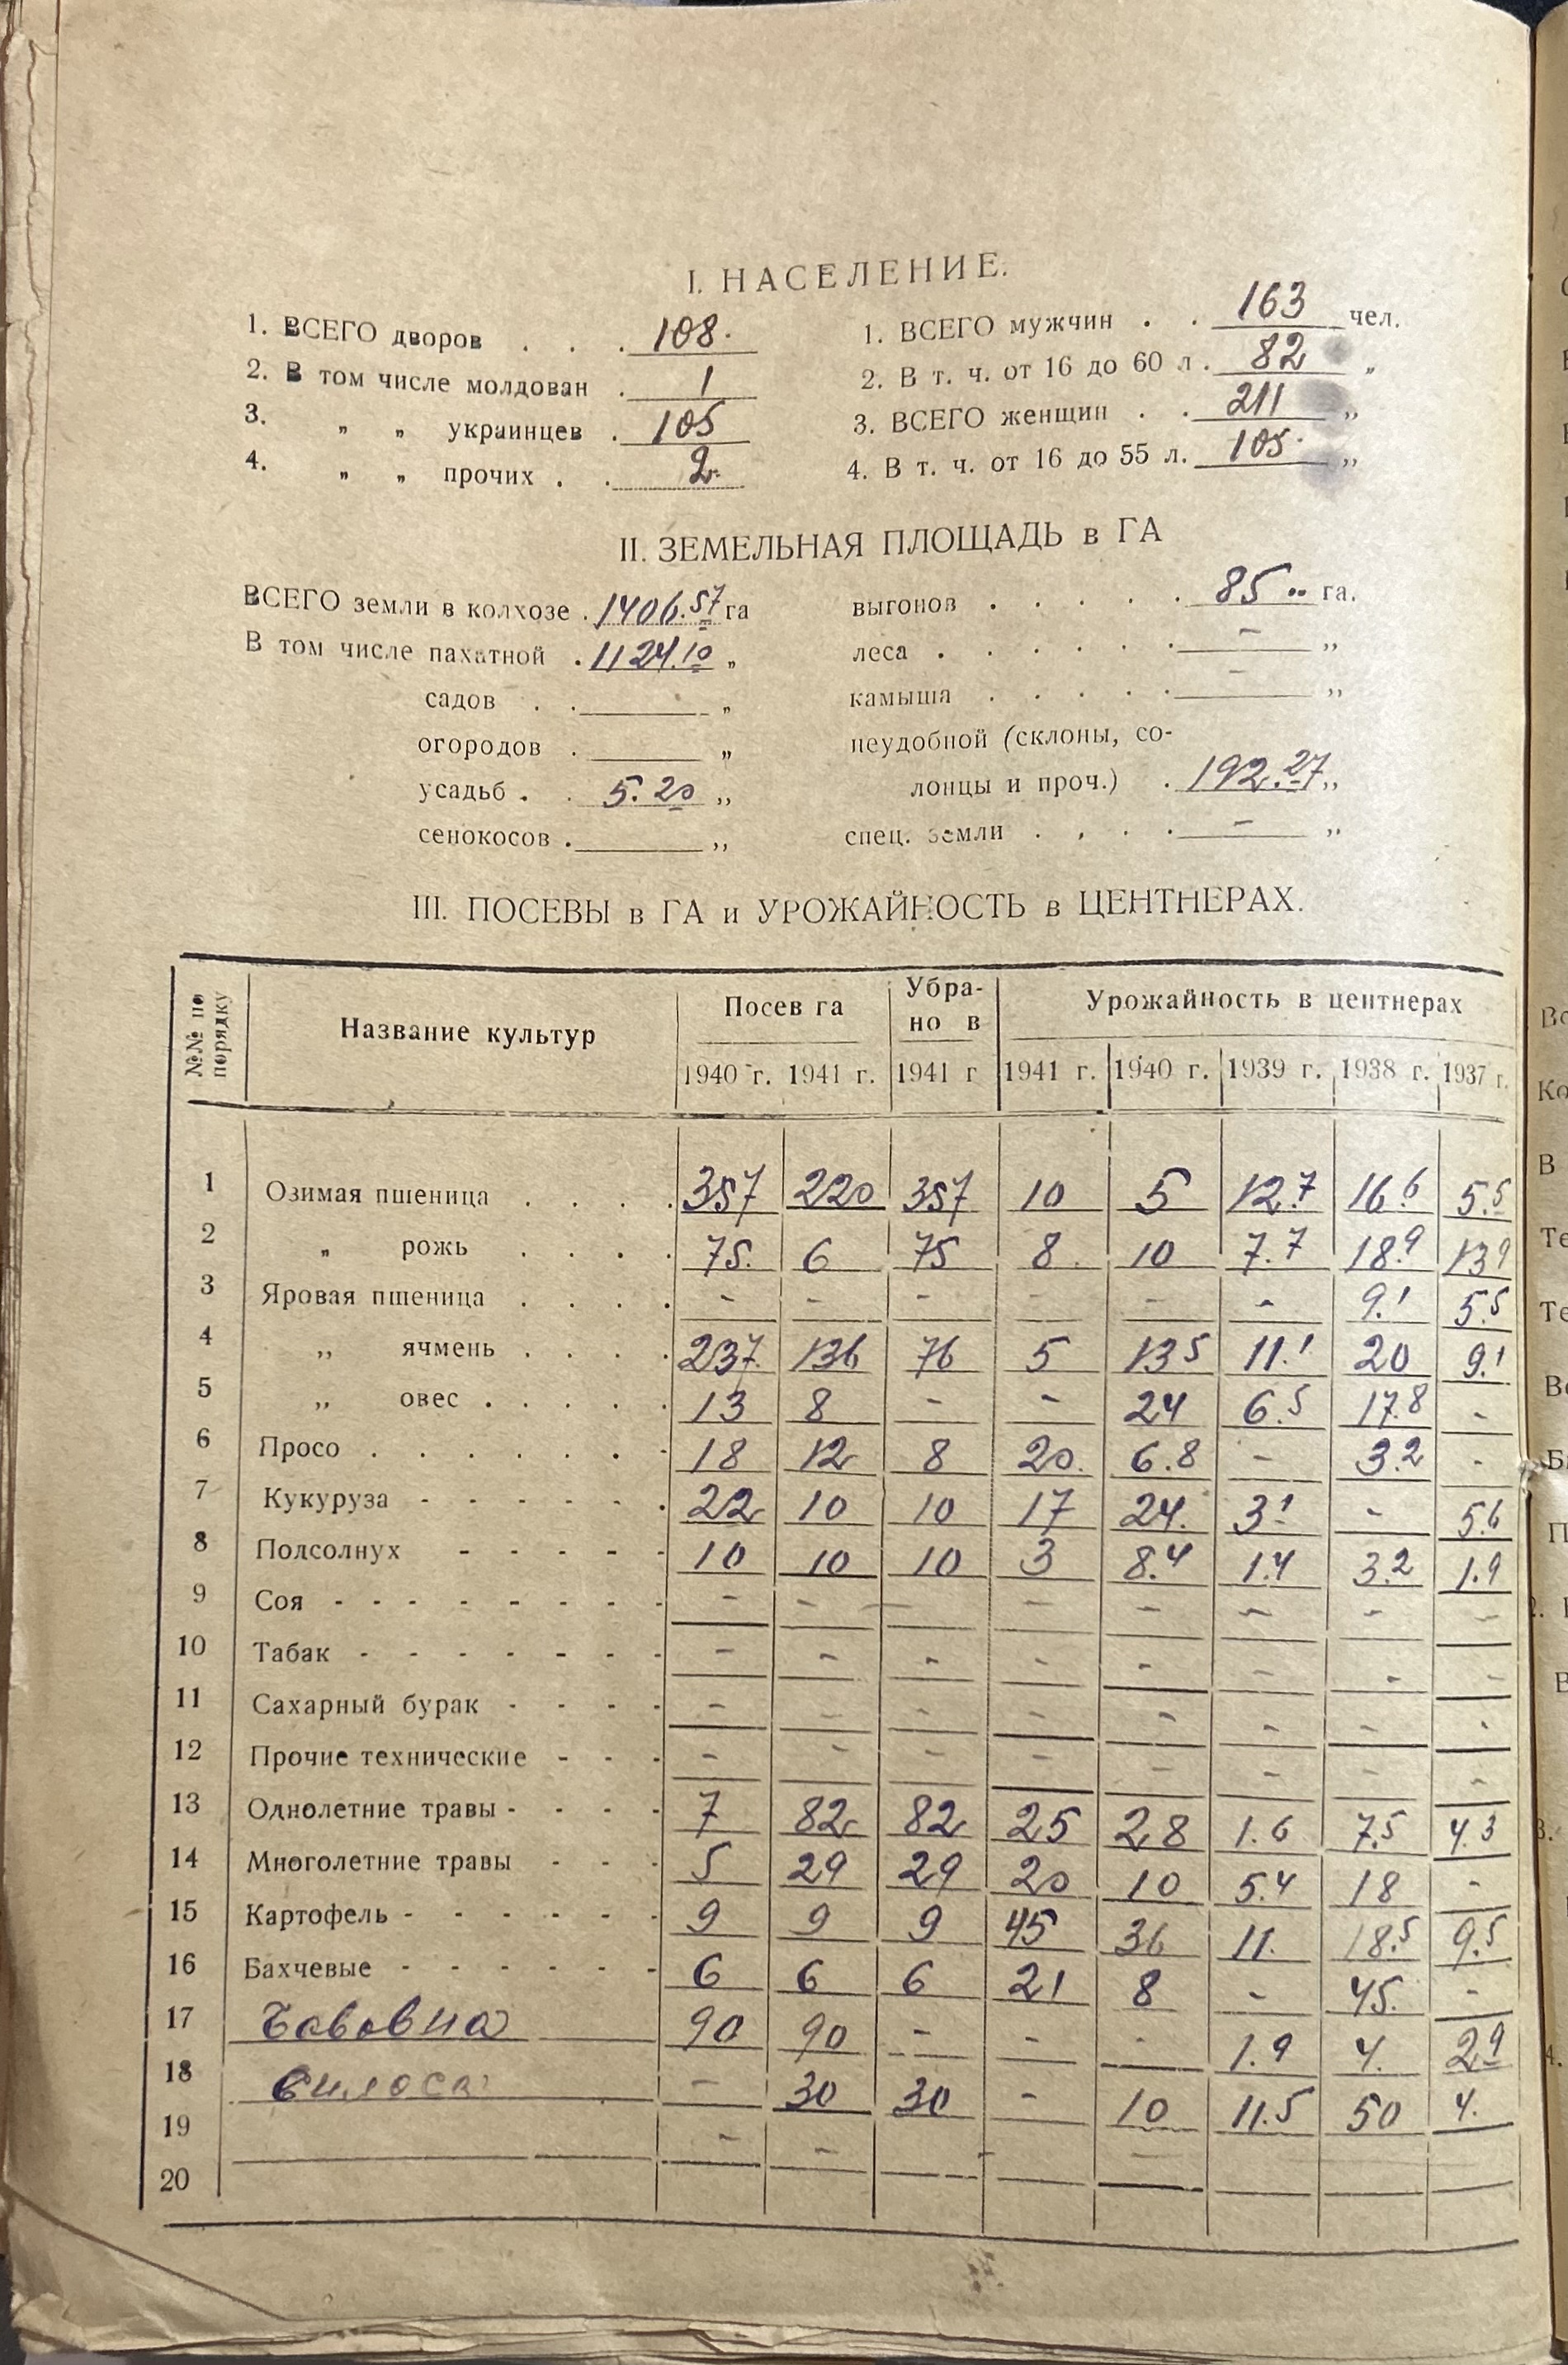 I. НАСЕЛЕНИЕ.
1. ВСЕГО дворов . . . 108.
2. В том числе молдован . 1
3. „ „ украинцев . 105
4. „ „ прочих . . 2
1. ВСЕГО мужчин . . 163 чел.
2. В т. ч. от 16 до 60 л . 82 „
3. ВСЕГО женщин . . 211 „
4. В т. ч. от 16 до 55 л. 105 „
II. ЗЕМЕЛЬНАЯ ПЛОЩАДЬ в ГА
ВСЕГО земли в колхозе . 1406.57 га
В том числе пахатной . 1124.10 „
садов . . „
огородов . „
усадьб . . 5.20 „
сенокосов . „
выгонов . . . . . 85 .. га.
леса . . . . . . – „
камыша . . . . . – „
неудобной (склоны, со-
лонцы и проч.) . 192.27 „
спец. земли . . . . – „
III. ПОСЕВЫ в ГА и УРОЖАЙНОСТЬ в ЦЕНТНЕРАХ.
№№ по порядку Название культур Посев га Убрано в Урожайность в центнерах
1940 г. 1941 г. 1941 г 1941 г. 1940 г. 1939 г. 1938 г. 1937 г.
1 Озимая пшеница . . . . 357 220 357 10 5 12.7 16.6 5.5
2 „ рожь . . . . 75. 6 75 8. 10 7.7 18.9 13.9
3 Яровая пшеница . . . . - - - - - - 9.1 5.5
4 „ ячмень . . . . 237. 136 76 5 13 5 11.1 20 9.1
5 „ овес . . . . . 13 8 - - 24 6.5 17.8 -
6 Просо . . . . . . . 18 12 8 20. 6.8 - 3.2 -
7 Кукуруза - - - - - . 22 10 10 17 24. 3.1 - 5.6
8 Подсолнух - - - - - 10 10 10 3 8.4 1.4 3.2 1.9
9 Соя - - - - - - - - - - - - - - - -
10 Табак - - - - - - - - - - - - - - -
11 Сахарный бурак - - - - - - - - - - - -
12 Прочие технические - - - - - - - - - - -
13 Однолетние травы - - - - 7 82 82 25 28 1.6 7.5 4.3
14 Многолетние травы - - - 5 29 29 20 10 5.4 18 -
15 Картофель - - - - - - 9 9 9 45 36 11. 18.5 9.5
16 Бахчевые - - - - - - 6 6 6 21 8 - 45. -
17 Бавовна 90 90 - - - 1.9 4. 2.9
18 силоса - 30 30 - 10 11.5 50 4.
19 - - -
20